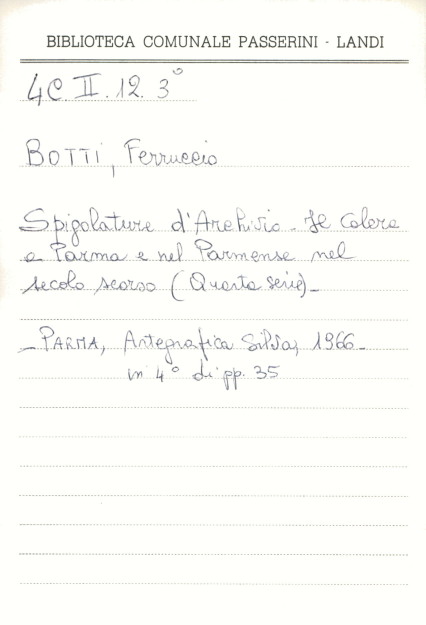 BIBLIOTECA COMUNALE PASSERINI - LANDI
4C. II. 12. 3°
BOTTI, Ferruccio
Spigolature d'Archivio - Il Colera
a Parma e nel Parmense nel
secolo scorso (Quarta serie)_
_ PARMA, Artegrafica Silva, 1966_
in 4° di pp. 35